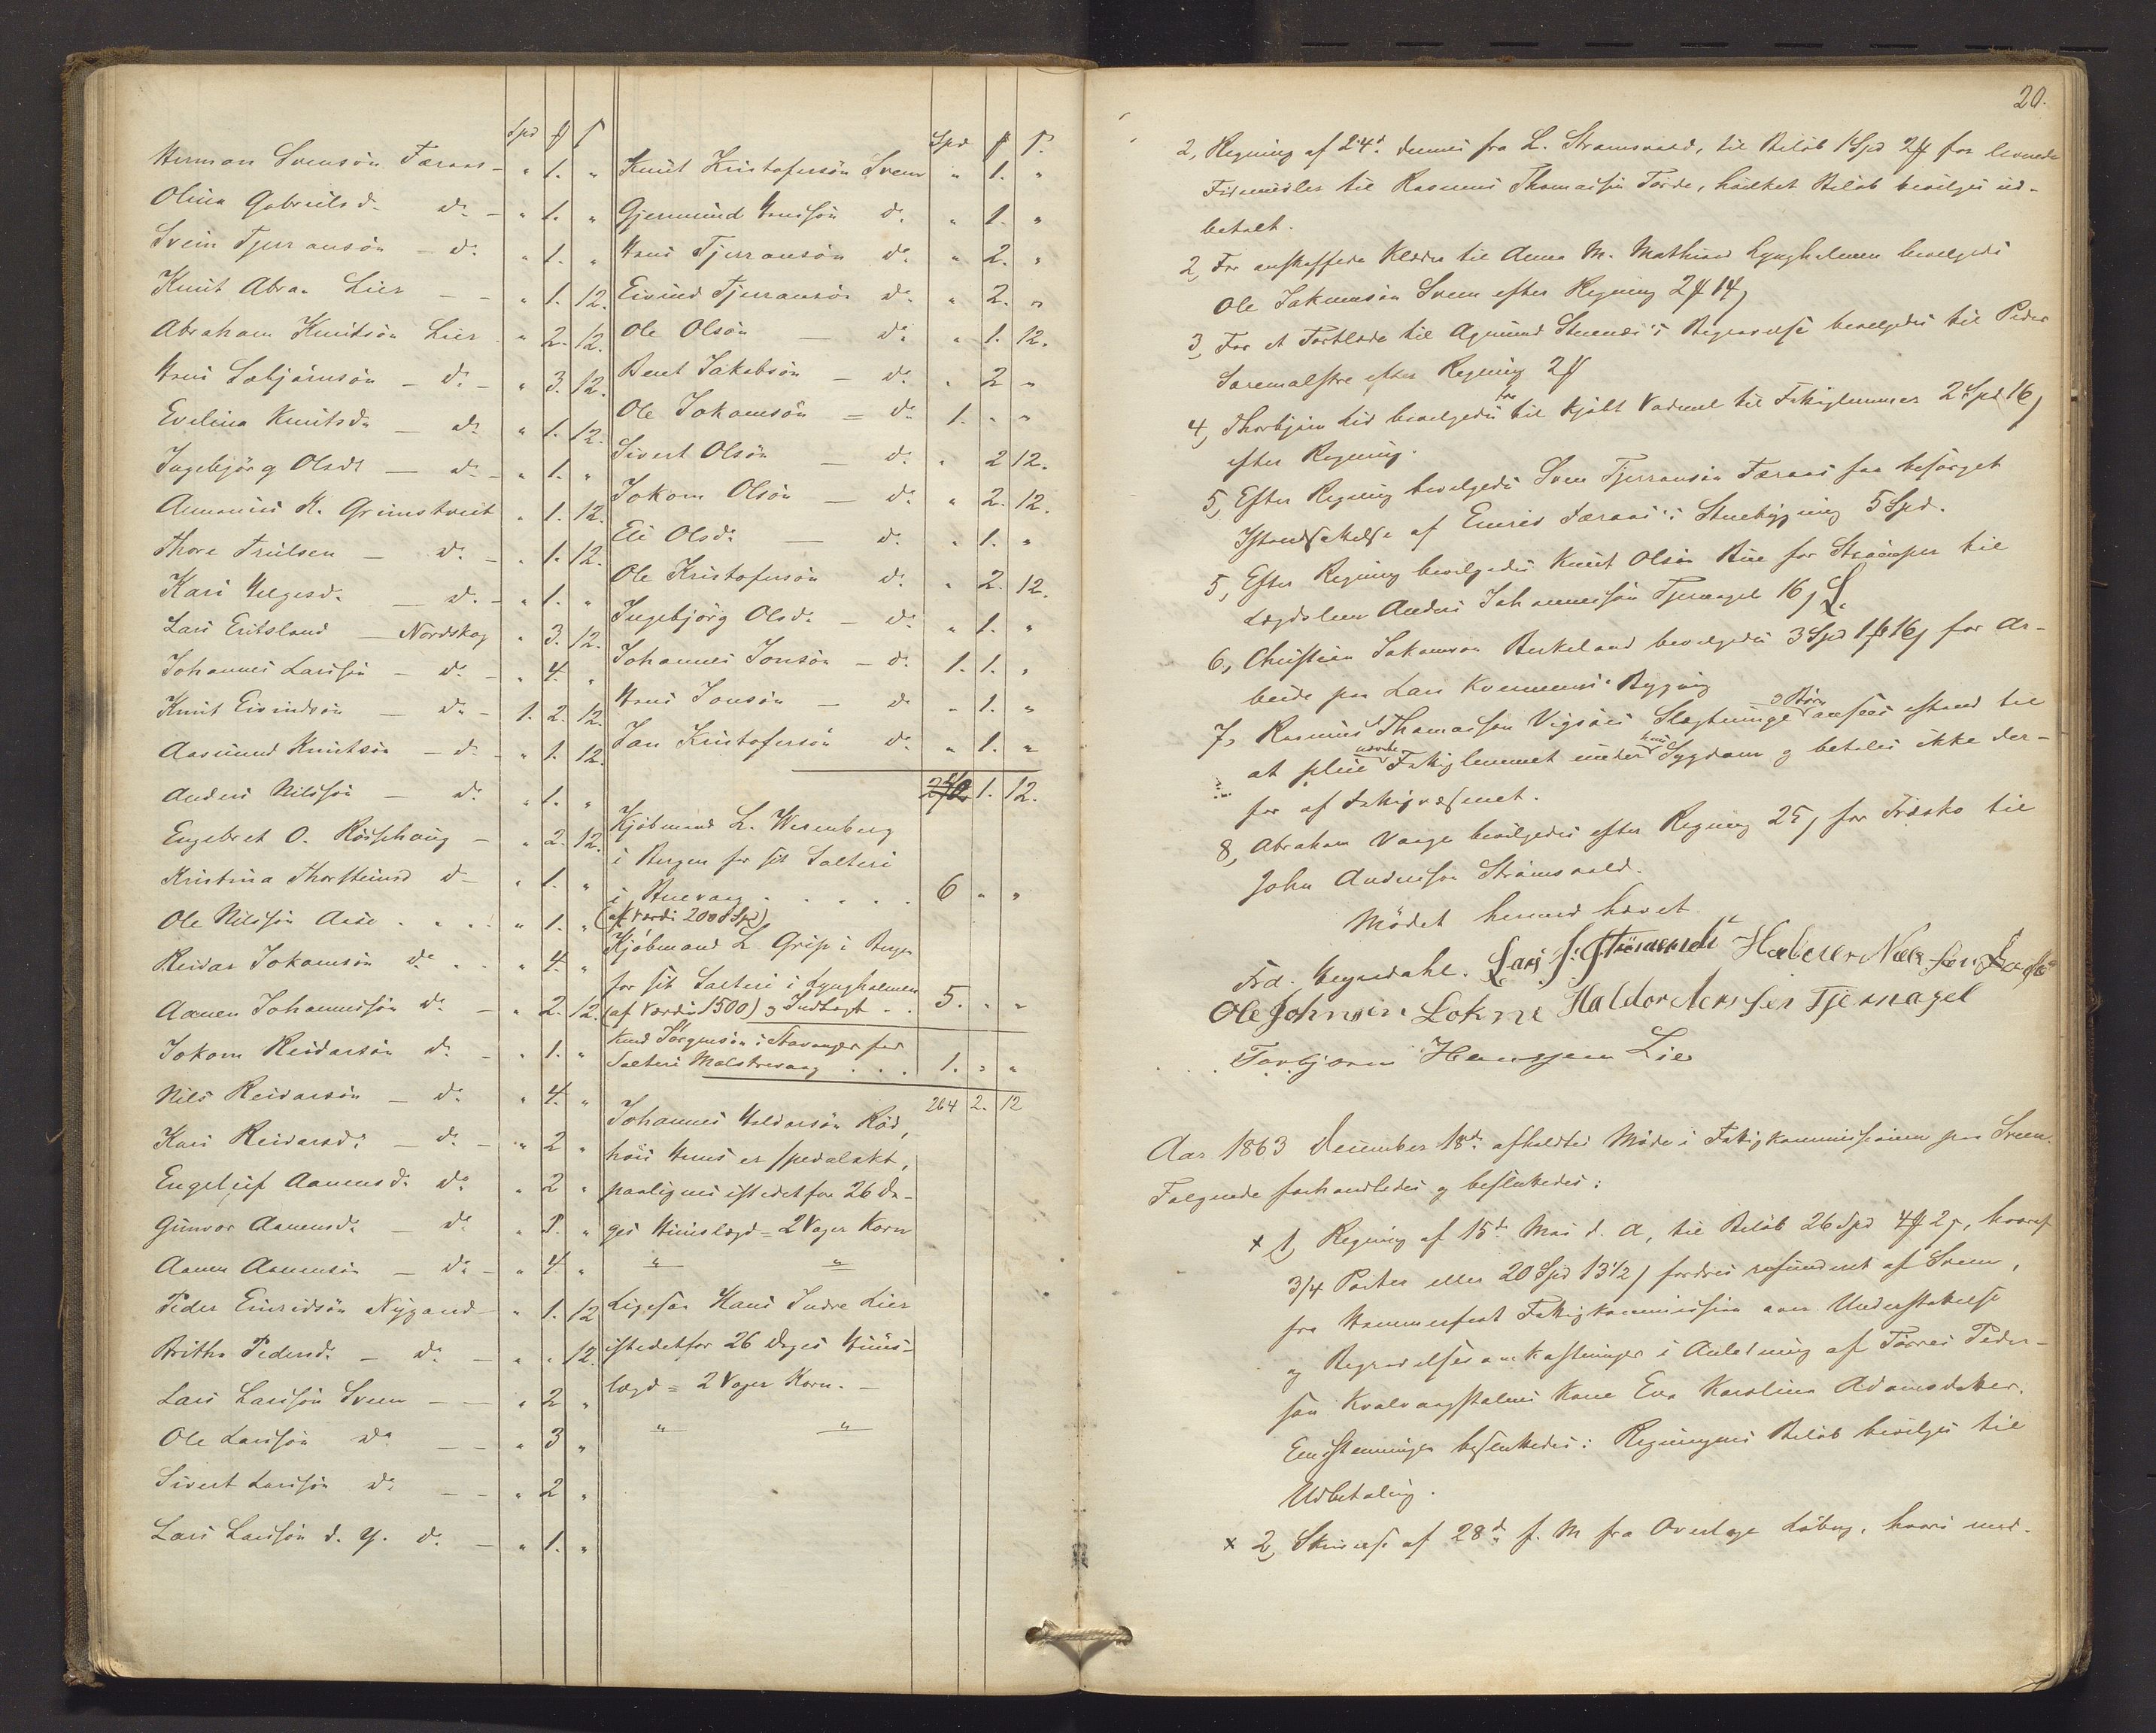 Spd ₰ ſ
Herman Svensön Færaas - " 1. "
Olina Gabrielsd. do - " 1. "
Svein Tjerransön - do " 1. "
Knut Abra. Lier - - " 1. 12.
Abraham Knutsön Lier " 2. 12.
Hans Sæbjörnsön - do - " 3. 12.
Evelina Knutsdr - do " 1. 12.
Ingebjörg Olsdr - do - " 1. "
Ananias K. Grimstveit " 1. 12.
Thore Trulsen - do - " 1. 12.
Kari Helgesd. - do - " 1. "
Lars Eritsland - Nordskog " 3. 12.
Johannes Larssön - do - " 4. "
Knut Eivindsön - do - 1. 2. 12.
Aasmund Knutsön - do - " 1. 12.
Anders Nilssön - do " 1. "
Engebret O. - " 2. 12.
Kristina Thorsteinsd do - " 1. "
Ole Nilssön Aase . . . " 1. "
Reidar Jokomsön do . . " 4. "
Aamen Johannessön do - " 2. 12.
Jokom Reidarsön do - " 1. "
Nils Reidarsön - do " 4. "
Kari Reidarsd. - do - " 2 "
Engeleif Aamensd. do " 2 "
Gunvor Aamensd. - do " 2. "
Aamen Aamensön - do - " 4. "
Peder Einridsön Nygaard - " 1. 12
Britha Pedersd. - do - " " 12.
Lars Larssön Sveen - - " 2 "
Ole Larssön do - - " 3 "
Sivert Larssön do - - " 2 "
Lars Larssön d. y. do - " 1. "
Spd ₰ ſ.
Knut Kristofersön Sveen " 1. "
Gjermund Hanssön do. " 1. "
Hans Tjerransön do. " 2. "
Eivind Tjerransön do " 2. "
Ole Olsön - do " 1. 12.
Bent Jakobsön - do. " 2 "
Ole Jokomsön = do 1. " "
Sivert Olsön - do. " 2 12.
Jokom Olsön - do " 2. 12.
Eli Olsd. - do. " 1. "
Ole Kristofersön do. " 2. 12.
Ingebjörg Olsd. - do " 1. "
Johannes Jonsön - do. 1. 1. "
Hans Jonsön - do " 1. "
Jan Kristofersön do. " 1. "
1. 12.
Kjöbmand L. Wesenberg
i Bergen for sit Salteri
i Buevaag . . . . . 6 " "
(af Værdi 2000 Spd)
Kjöbmand L. Grip i Bergen
for sit Salteri i Lyngholmen
(af Værdi 1500) og Indtægt . . 5. " "
Knud Jörgensön i Stavanger for
Salteri Malstrevaag . . . 1. " "
264 2. 12
Johannes Haldorsön Röd,
hvis Huus er spedalskt,
paalignes istedetfor 26 Da-
ges Huuslægd = 2 Voger Korn
" "
Ligesaa Hans Indre Lier
istedetfor 26 Dages Huus-
lægd = 2 Voger Korn. -
" "
20.
2, Regning af 24d. dennes fra L. Strømsvold, til Beløb 1 Spd 2 ₰ for leverede
til Rasmus Thomassön Förde, hvilket Beløb bevilges ud-
betalt.
2, For anskaffede Klæder til Anna M. Mathiasd Lyngholmen bevilgedes
Ole Jakomsön Sveen efter Regning 2 ₰ 14 ſ
3, For et til Agmund Begravelse bevilgedes til Peder
efter Regning 2 ₰
4, Thorbjörn Lid bevilgedes for til kjöbt Vadmel til Fattiglemmer 2 Spd 16 ſ
efter Regning.
5, Efter Regning bevilgedes Sven Tjerransön Færaas for besørget
Istandsættelse af Einrid Færaas's Stuebygning 5 Spd.
5, Efter Regning bevilgedes Knut Olsön Bue for Strømper til
Lægdslem Anders Johannessön Tjernagel 16 ſ
6, Christian Jakamson Birkeland bevilgedes 3 Spd 1 ₰ 16 ſ for Ar-
beide paa Lars Bygning
7, Rasmus Thomasson Vigsnes Slægtninge og Börn ansees istand til
at pleie nævnte Fattiglemmet under hans Sygdom og betales ikke der-
for af Fattigvæsenet.
8, Abraham Vaage bevilgedes efter Regning 25 ſ for Træsko til
John Anderson Strömsvold.
Mödet hermed hævet
Frd. Lars J. Strömsvold
Ole Johnsen Lokne Haldor Tjernagel
Torbjörn Hansen Lie
Aar 1863 December 18de afholdtes Møde i Fattigkommissionen paa Sveen.
Følgende forhandledes og besluttedes:
x 1, Regning af 15de Mai d. A, til Beløb 26 Spd 4 ₰ 2 ſ, hvoraf
3/4 Parter eller 20 Spd 13 1/2 ſ fordres refunderet af Sveen,
fra Hammerfest Fattigkommission over Understøttelse
og Begravelsesomkostninger i Anledning af Törres Peder-
sön Kone Eva Karolina Adamsdatter.
Eenstemmigen besluttedes: Regningens Beløb bevilges til
Udbetaling.
x 2, Skrivelse af 28de f. M fra Overlæge Löberg, hvori med-